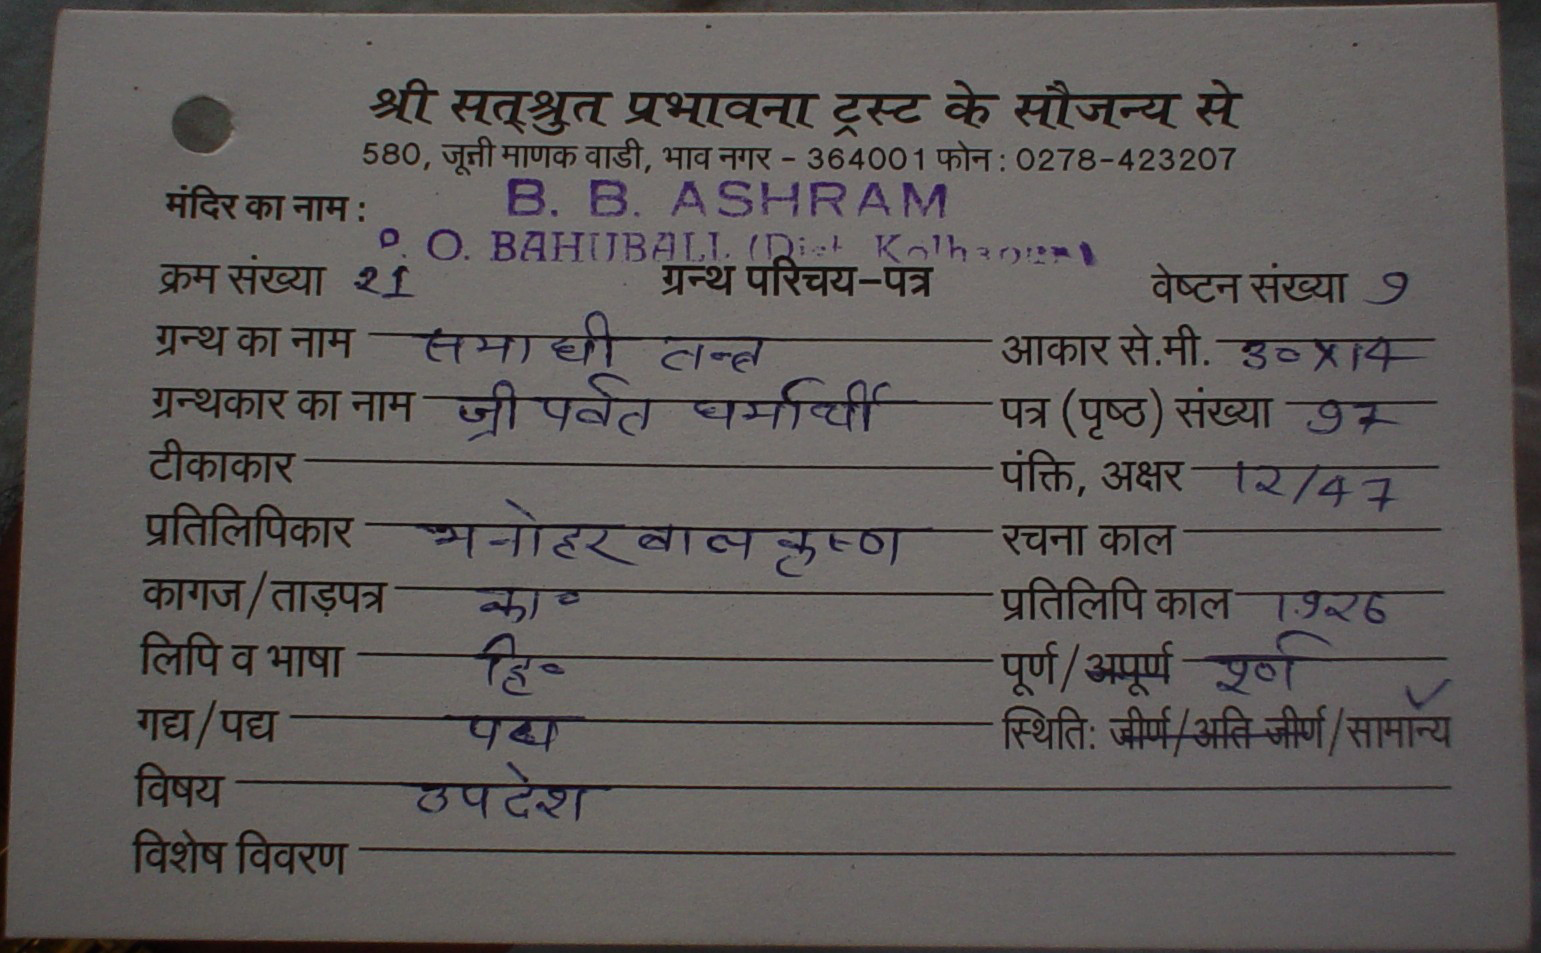 श्री सत्श्रुत प्रभावना ट्रस्ट के सौजन्य से
580, जूनी माणक वाडी, भाव नगर - 364001 फोन : 0278-423207
मंदिर का नाम : B. B. ASHRAM
P. O. BAHUBALI. (Dist. Kolhapur)
क्रम संख्या 21 ग्रन्थ परिचय-पत्र वेष्टन संख्या 9
ग्रन्थ का नाम समाधी तन्त्र आकार से.मी. 30 X 14
ग्रन्थकार का नाम श्री पर्वत धर्मार्थी पत्र (पृष्ठ) संख्या 97
टीकाकार पंक्ति, अक्षर 12/47
प्रतिलिपिकार मनोहर बालकृष्ण रचना काल
कागज/ताड़पत्र का॰ प्रतिलिपि काल 1926
लिपि व भाषा हि॰ पूर्ण/अपूर्ण पूर्ण
गद्य/पद्य पद्य स्थिति: जीर्ण/अति जीर्ण/सामान्य
विषय उपदेश
विशेष विवरण